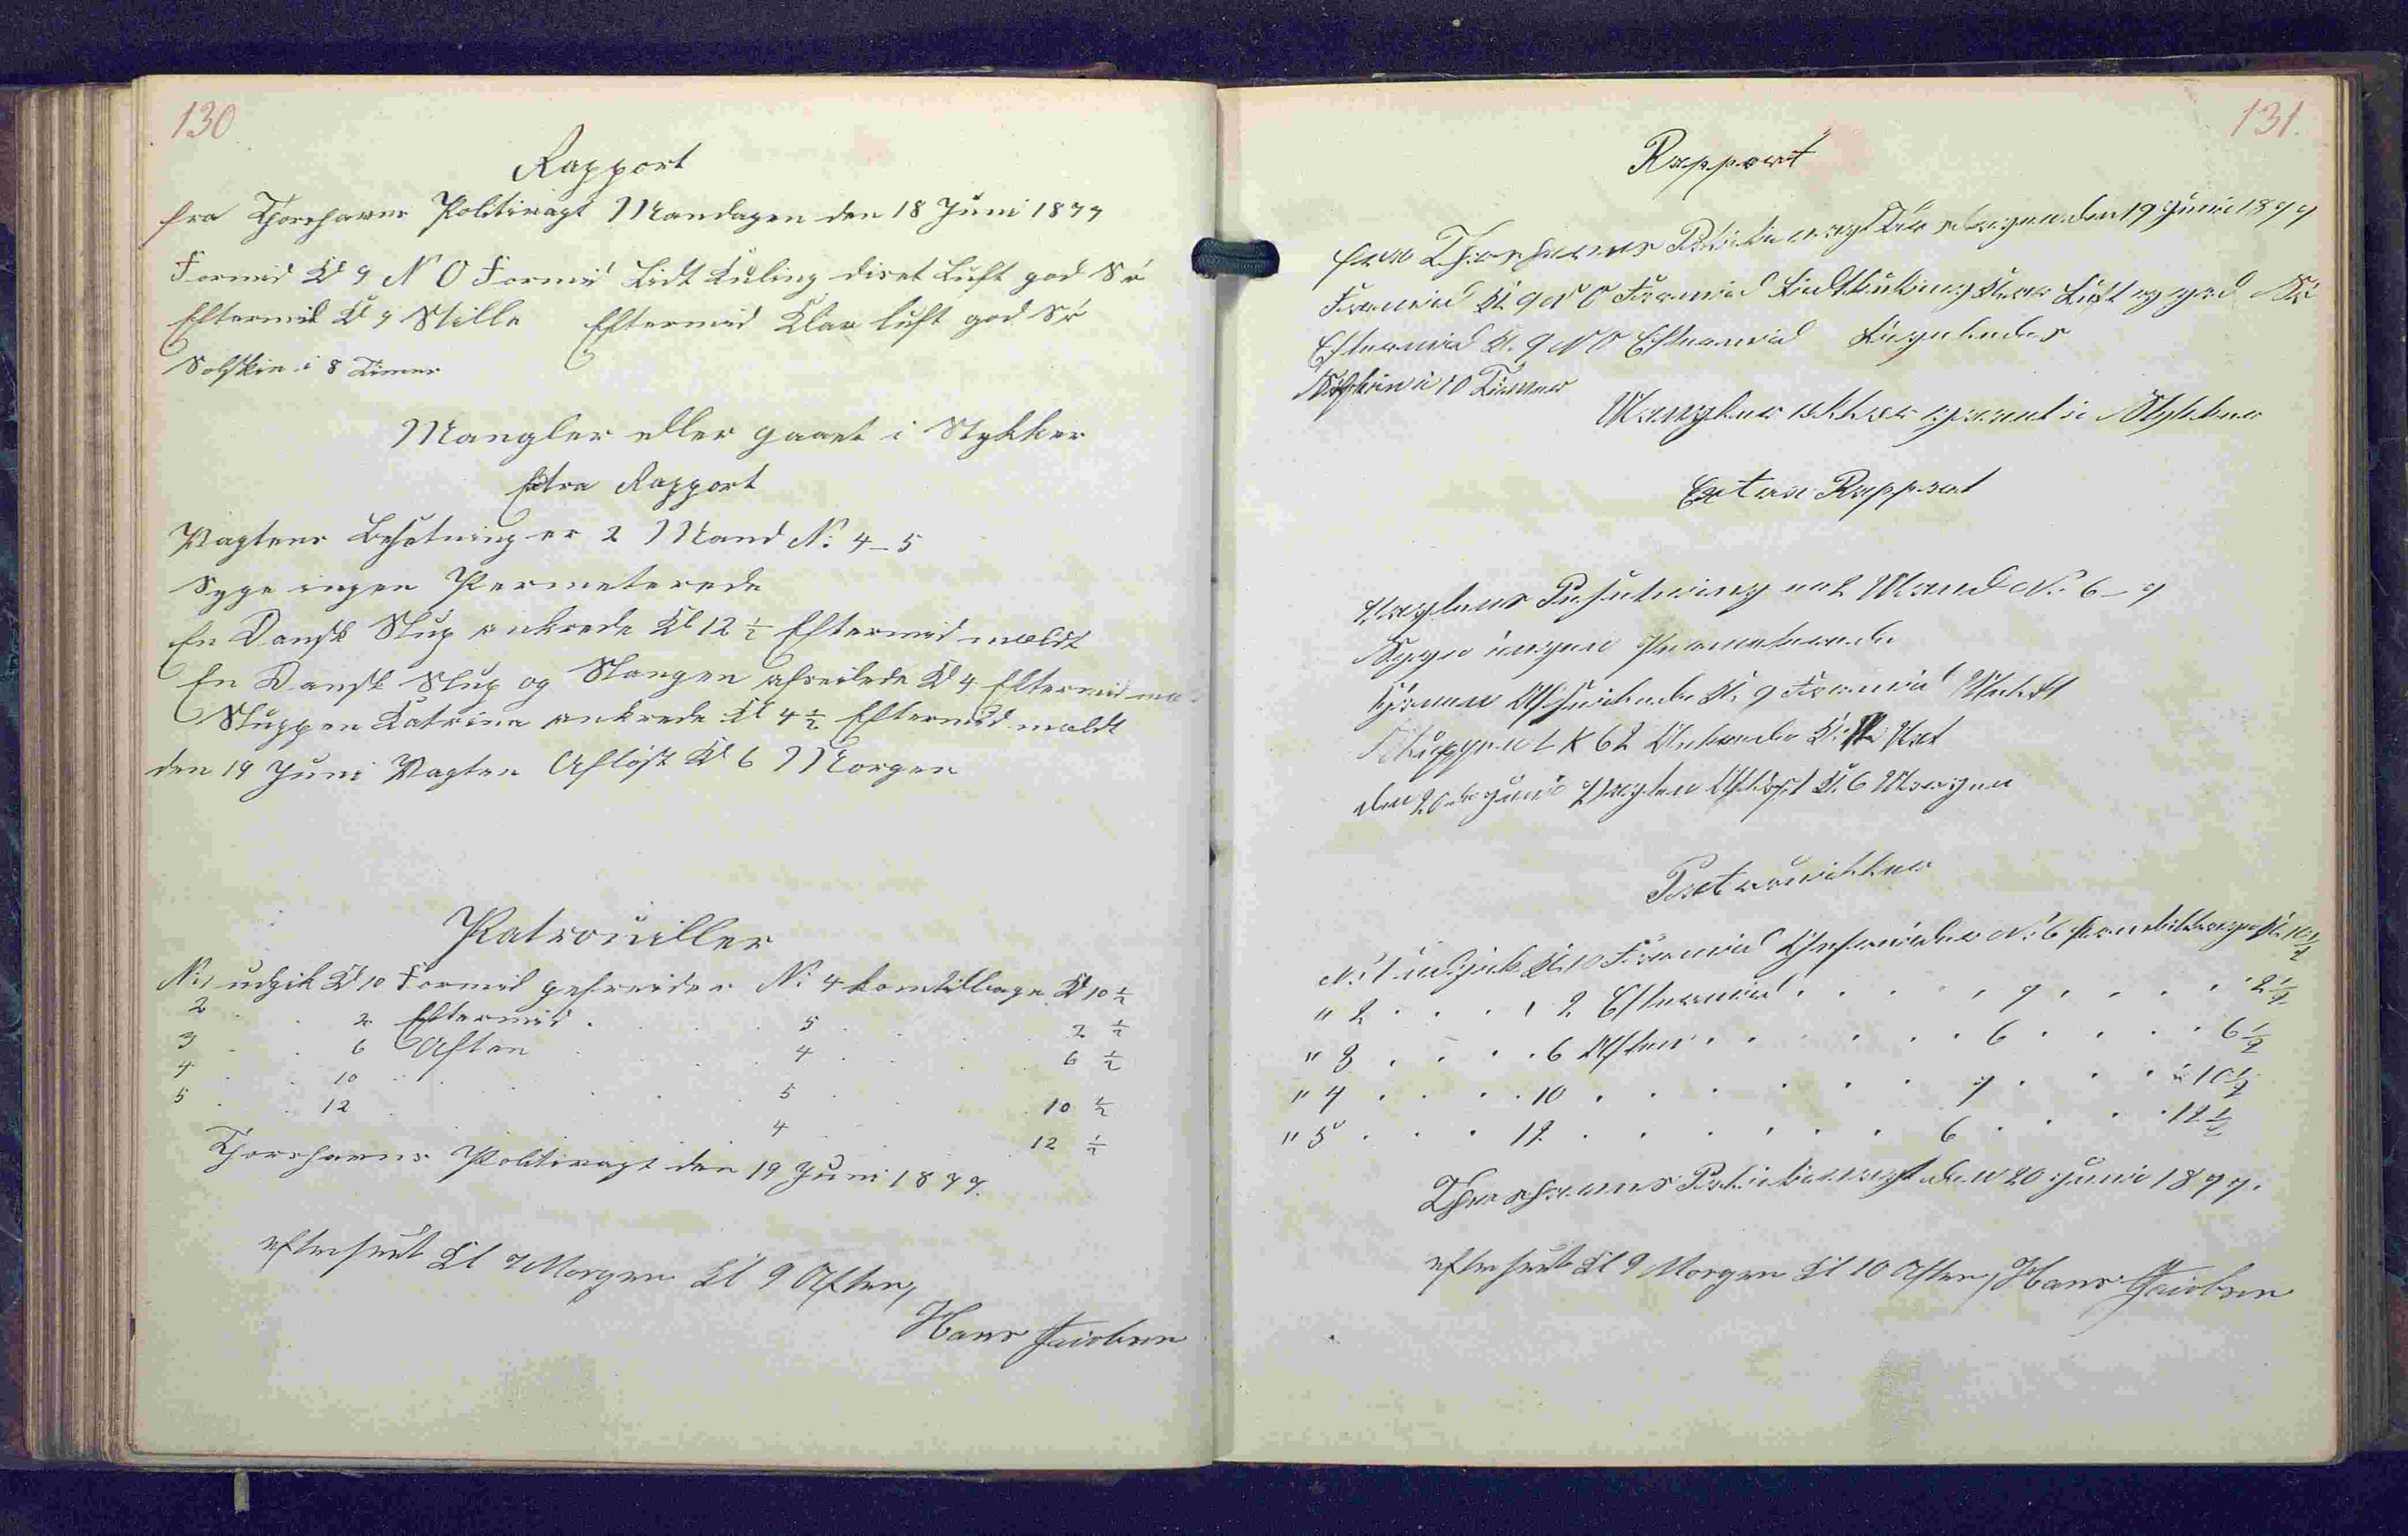 130
Rapport
fra Thorshavns Politivagt Mandagen den 18 Juni 1877
Formid Kl 9 N O Formid Lidt Kuling diset Luft god Sö
Eftermid Kl 9 Stille Eftermid Klar luft god Sö
Solskin i 8 Timer
Mangler eller gaaet i Stykker
Extra Rapport
Vagtens Besætning er 2 Mand No 4-5
Syge ingen Permeterede
En Dansk Slup ankrede Kl 12 1/2 Eftermid meldt
En Dansk Slup og afseilede Kl 4 Eftermid
Sluppen Katrina ankrede Kl 4 1/2 Eftermid meldt
den 19 Juni Vagten Aflöst Kl 6 Morgen
Patrouiller
No 1 udgik Kl 10 Formid gefreider No 4 kom tilbage Kl 10 1/2
2 . . 2 Eftermid . . . 5 . . 2 1/2
3 . . 6 Aften . . 4 . . 6 1/2
4 . . 10 . . . 5 . . 10 1/2
5 . . 12 . . . 4 . . 12 1/2
Thorshavns Politivagt den 19 Juni 1877.
efterseet Kl 7 Morgen Kl 9 Aften,
Hans Jacobsen
131.
Rapport
fra Thorshavns Politivagt Tirsdagen den 19 Juni 1877
Formid Kl. 9 N O Formid Lidt Kuling Klar Luft og god Sö
Eftermid Kl. 9 N O Eftermid Ligeledes
Solskin i 10 Timer
Mangler eller gaaet i Stykker
Extra Rapport
Vagtens Besætning er 2 Mand No 6-7
Syge ingen Permeterede
Afseilede Kl. 9 Formid Meldt
Sluppen L K 62 Ankrede Kl.
den 20de Juni Vagten Aflöst Kl. 6 Morgen
Patrouiller
No 1 udgik Kl. 10 Formid Gefreider No 6 kom tilbage Kl. 10 1/2
" 2 . . . . 2 Eftermid . . . . . 7 . . . . 2 1/2
" 3 . . . . 6 Aften . . . . . . 6 . . . . 6 1/2
" 4 . . . . 10 . . . . . . 7 . . . . 10 1/2
" 5 . . . 12 . . . . . . 6 . . . . 12 1/2
Thorshavns Politivagt den 20 Juni 1877.
efterseet Kl 9 Morgen Kl 10 Aften, Hans Jacobsen